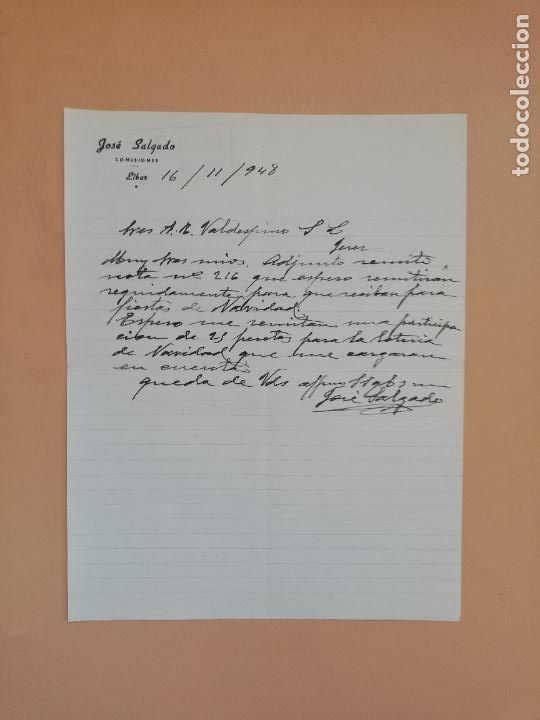 José Salgado
COMISIONES
Eibar 16 / 11 / 948
Sres A. R. Valdespino S L
Jerez
Muy Sres mios. Adjunto remito
nota nº 216 que espero remitiran
seguidamente para que reciban para
fiestas de Navidad.
Espero me remitan una participa
cion de 25 pesetas para la loteria
de Navidad que me cargaran
en cuenta
queda de Vds affmo
José Salgado
todocoleccion
todocoleccion